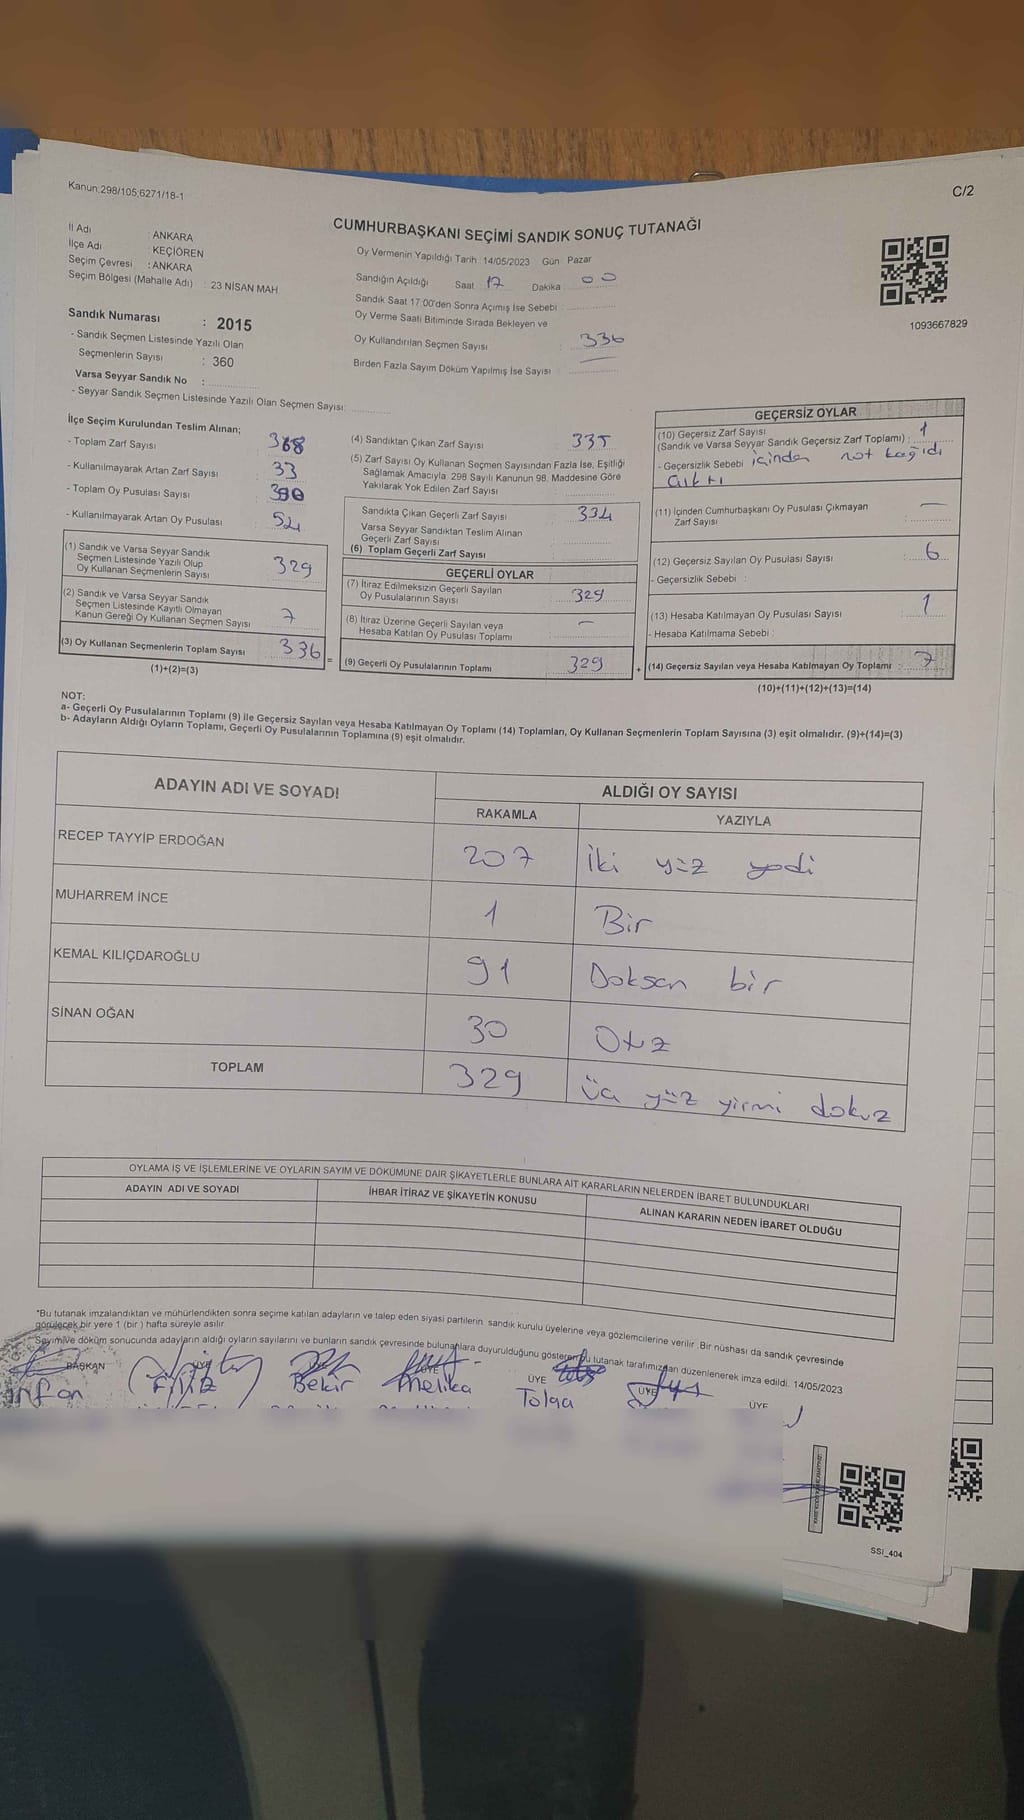 Kanun;298/105;6271/18-1
C/2
CUMHURBAŞKANI SEÇİMİ SANDIK SONUÇ TUTANAĞI
İl Adı : ANKARA
İlçe Adı : KEÇİÖREN
Seçim Çevresi : ANKARA
Seçim Bölgesi (Mahalle Adı) : 23 NİSAN MAH
Sandık Numarası : 2015
- Sandık Seçmen Listesinde Yazılı Olan
Seçmenlerin Sayısı : 360
Varsa Seyyar Sandık No :
- Seyyar Sandık Seçmen Listesinde Yazılı Olan Seçmen Sayısı:
Oy Vermenin Yapıldığı Tarih: 14/05/2023 Gün: Pazar
Sandığın Açıldığı Saat 17 Dakika 00
Sandık Saat 17:00'den Sonra Açımış İse Sebebi :
Oy Verme Saati Bitiminde Sırada Bekleyen ve
Oy Kullandırılan Seçmen Sayısı : 336
Birden Fazla Sayım Döküm Yapılmış İse Sayısı :
1093667829
İlçe Seçim Kurulundan Teslim Alınan;
- Toplam Zarf Sayısı : 368
- Kullanılmayarak Artan Zarf Sayısı : 33
- Toplam Oy Pusulası Sayısı :
- Kullanılmayarak Artan Oy Pusulası : 54
(1) Sandık ve Varsa Seyyar Sandık
Seçmen Listesinde Yazılı Olup
Oy Kullanan Seçmenlerin Sayısı : 329
(2) Sandık ve Varsa Seyyar Sandık
Seçmen Listesinde Kayıtlı Olmayan
Kanun Gereği Oy Kullanan Seçmen Sayısı : 7
(3) Oy Kullanan Seçmenlerin Toplam Sayısı : 336 =
(1)+(2)=(3)
(4) Sandıktan Çıkan Zarf Sayısı : 335
(5) Zarf Sayısı Oy Kullanan Seçmen Sayısından Fazla İse, Eşitliği
Sağlamak Amacıyla 298 Sayılı Kanunun 98. Maddesine Göre
Yakılarak Yok Edilen Zarf Sayısı :
Sandıkta Çıkan Geçerli Zarf Sayısı : 334
Varsa Seyyar Sandıktan Teslim Alınan
Geçerli Zarf Sayısı :
(6) Toplam Geçerli Zarf Sayısı :
GEÇERLİ OYLAR
(7) İtiraz Edilmeksizin Geçerli Sayılan
Oy Pusulalarının Sayısı : 329
(8) İtiraz Üzerine Geçerli Sayılan veya
Hesaba Katılan Oy Pusulası Toplamı : -
(9) Geçerli Oy Pusulalarının Toplamı : 329 +
GEÇERSİZ OYLAR
(10) Geçersiz Zarf Sayısı
(Sandık ve Varsa Seyyar Sandık Geçersiz Zarf Toplamı) : 1
- Geçersizlik Sebebi içinden not kağıdı
çıktı
(11) İçinden Cumhurbaşkanı Oy Pusulası Çıkmayan
Zarf Sayısı : -
(12) Geçersiz Sayılan Oy Pusulası Sayısı : 6
- Geçersizlik Sebebi :
(13) Hesaba Katılmayan Oy Pusulası Sayısı : 1
- Hesaba Katılmama Sebebi :
(14) Geçersiz Sayılan veya Hesaba Katılmayan Oy Toplamı : 7
(10)+(11)+(12)+(13)=(14)
NOT:
a- Geçerli Oy Pusulalarının Toplamı (9) ile Geçersiz Sayılan veya Hesaba Katılmayan Oy Toplamı (14) Toplamları, Oy Kullanan Seçmenlerin Toplam Sayısına (3) eşit olmalıdır. (9)+(14)=(3)
b- Adayların Aldığı Oyların Toplamı, Geçerli Oy Pusulalarının Toplamına (9) eşit olmalıdır.
ADAYIN ADI VE SOYADI ALDIĞI OY SAYISI
RAKAMLA YAZIYLA
RECEP TAYYİP ERDOĞAN 207 İki yüz yedi
MUHARREM İNCE 1 Bir
KEMAL KILIÇDAROĞLU 91 Doksan bir
SİNAN OĞAN 30 Otuz
TOPLAM 329 üç yüz yirmi dokuz
OYLAMA İŞ VE İŞLEMLERİNE VE OYLARIN SAYIM VE DÖKÜMÜNE DAİR ŞİKAYETLERLE BUNLARA AİT KARARLARIN NELERDEN İBARET BULUNDUKLARI
ADAYIN ADI VE SOYADI İHBAR İTİRAZ VE ŞİKAYETİN KONUSU ALINAN KARARIN NEDEN İBARET OLDUĞU
*Bu tutanak imzalandıktan ve mühürlendikten sonra seçime katılan adayların ve talep eden siyasi partilerin sandık kurulu üyelerine veya gözlemcilerine verilir. Bir nüshası da sandık çevresinde
görülecek bir yere 1 (bir) hafta süreyle asılır.
Sayım ve döküm sonucunda adayların aldığı oyların sayılarını ve bunların sandık çevresinde bulunanlara duyurulduğunu gösteren bu tutanak tarafımızdan düzenlenerek imza edildi. 14/05/2023
BAŞKAN ÜYE ÜYE ÜYE ÜYE ÜYE ÜYE
İrfan Filiz Bekir Melika Tolga
SSI_404